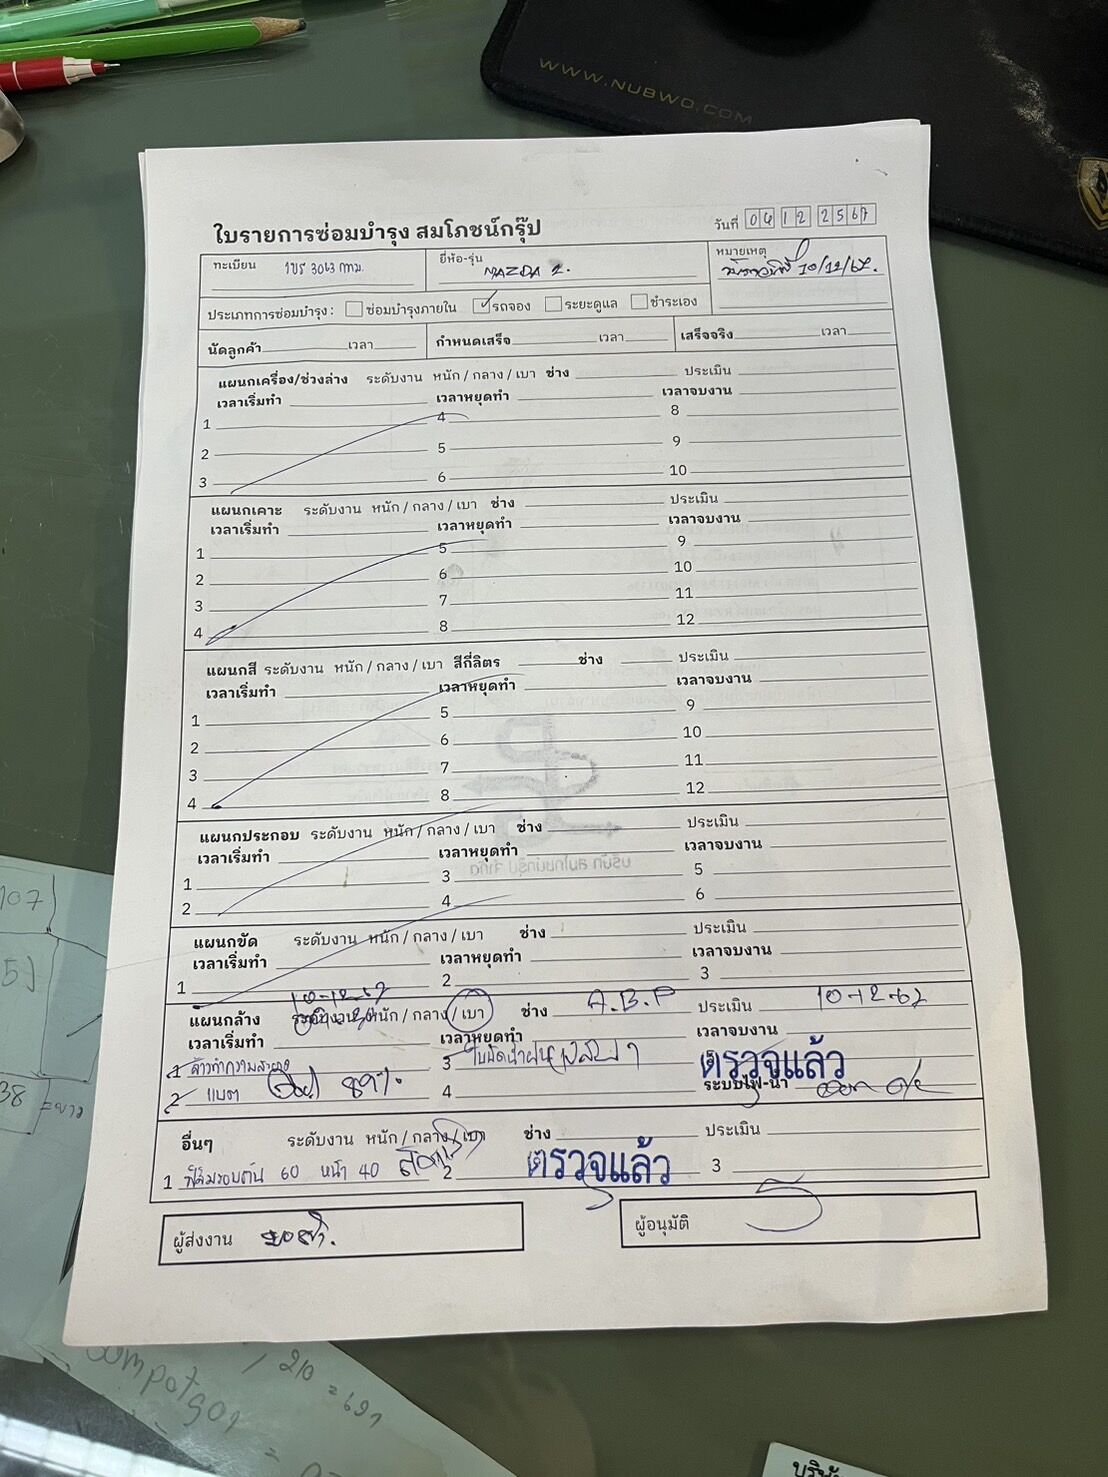 WWW.NUBWO.COM
ใบรายการซ่อมบำรุง สมโภชน์กรุ๊ป
วันที่ 04 12 2567
ทะเบียน 3063 กทม.
ยี่ห้อ-รุ่น MAZDA 2.
หมายเหตุ 10/12/67.
ประเภทการซ่อมบำรุง : ซ่อมบำรุงภายใน รถจอง ระยะดูแล ชำระเอง
นัดลูกค้า เวลา กำหนดเสร็จ เวลา เสร็จจริง เวลา
แผนกเครื่อง/ช่วงล่าง ระดับงาน หนัก / กลาง / เบา ช่าง ประเมิน
เวลาเริ่มทำ เวลาหยุดทำ เวลาจบงาน
1 4 8
2 5 9
3 6 10
แผนกเคาะ ระดับงาน หนัก / กลาง / เบา ช่าง ประเมิน
เวลาเริ่มทำ เวลาหยุดทำ เวลาจบงาน
1 5 9
2 6 10
3 7 11
4 8 12
แผนกสี ระดับงาน หนัก / กลาง / เบา สีกี่ลิตร ช่าง ประเมิน
เวลาเริ่มทำ เวลาหยุดทำ เวลาจบงาน
1 5 9
2 6 10
3 7 11
4 8 12
แผนกประกอบ ระดับงาน หนัก / กลาง / เบา ช่าง ประเมิน
เวลาเริ่มทำ เวลาหยุดทำ เวลาจบงาน
1 3 5
2 4 6
แผนกขัด ระดับงาน หนัก / กลาง / เบา ช่าง ประเมิน
เวลาเริ่มทำ เวลาหยุดทำ เวลาจบงาน
1 2 3
10-12-67
แผนกล้าง ระดับงาน หนัก / กลาง / เบา ช่าง A.B.P ประเมิน 10-12-67
เวลาเริ่มทำ เวลาหยุดทำ เวลาจบงาน
1 ล้างทำความสะอาด 3 ใบปัดน้ำฝน ตรวจแล้ว
2 แบต 89% 4 ระบบไฟ-น้ำ
อื่นๆ ระดับงาน หนัก / กลาง / เบา ช่าง ประเมิน
1 ฟิล์มรอบคัน 60 หน้า 40 2 ตรวจแล้ว 3
ผู้ส่งงาน
ผู้อนุมัติ